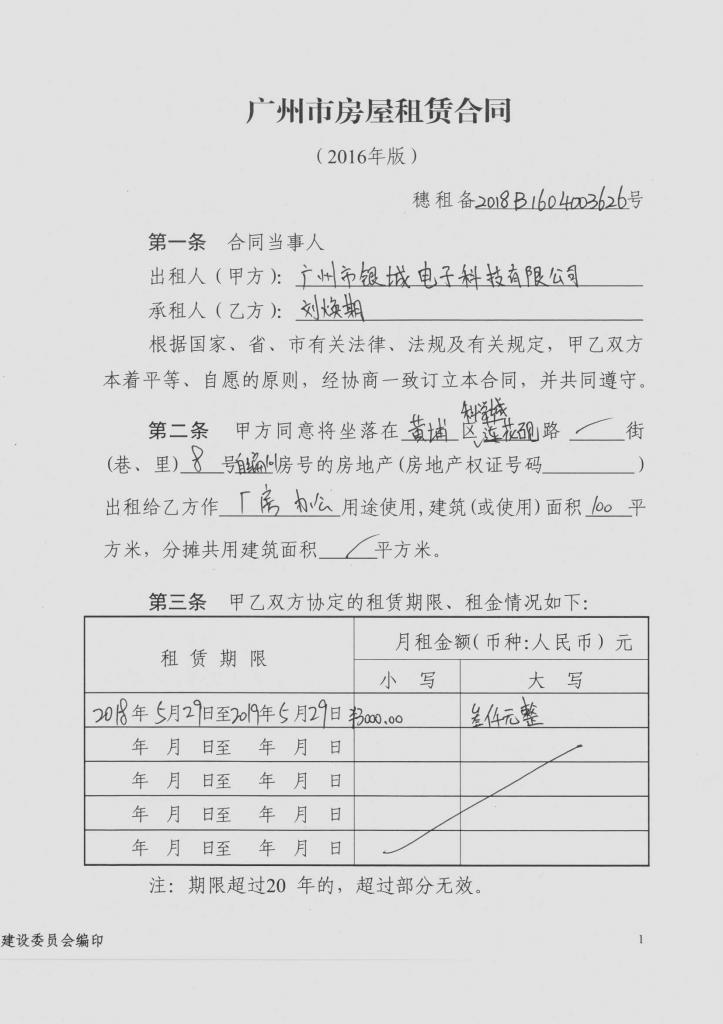 广州市房屋租赁合同
（2016年版）
穗租备2018B1604003626号
第一条 合同当事人
出租人（甲方）：广州市银城电子科技有限公司
承租人（乙方）：刘焕期
根据国家、省、市有关法律、法规及有关规定，甲乙双方
本着平等、自愿的原则，经协商一致订立本合同，并共同遵守。
第二条 甲方同意将坐落在黄埔区科学城莲花砚路／街
(巷、里)8号自编101房号的房地产(房地产权证号码 )
出租给乙方作厂房办公用途使用,建筑(或使用)面积100平
方米，分摊共用建筑面积／平方米。
第三条 甲乙双方协定的租赁期限、租金情况如下：
租赁期限 月租金额(币种:人民币)元
小写 大写
2018年5月29日至2019年5月29日 ¥3000.00 叁仟元整
年 月 日至 年 月 日
年 月 日至 年 月 日
年 月 日至 年 月 日
年 月 日至 年 月 日
注：期限超过20 年的，超过部分无效。
建设委员会编印 1